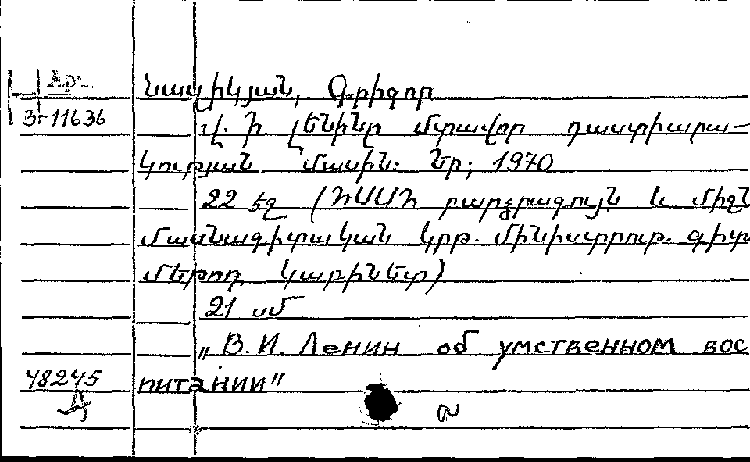 Գրիգոր
3-11636
Վ. Ի. Լենինը մտավոր դաստիարա-
կության մասին: Եր., 1970
22 էջ (ՀՍՍՀ բարձրագույն և միջն
մասնագիտական կրթ. մինիստրութ. գիտ
մեթոդ. կաբինետ)
21 սմ
„В.И. Ленин об умственном вос
48245 питании"